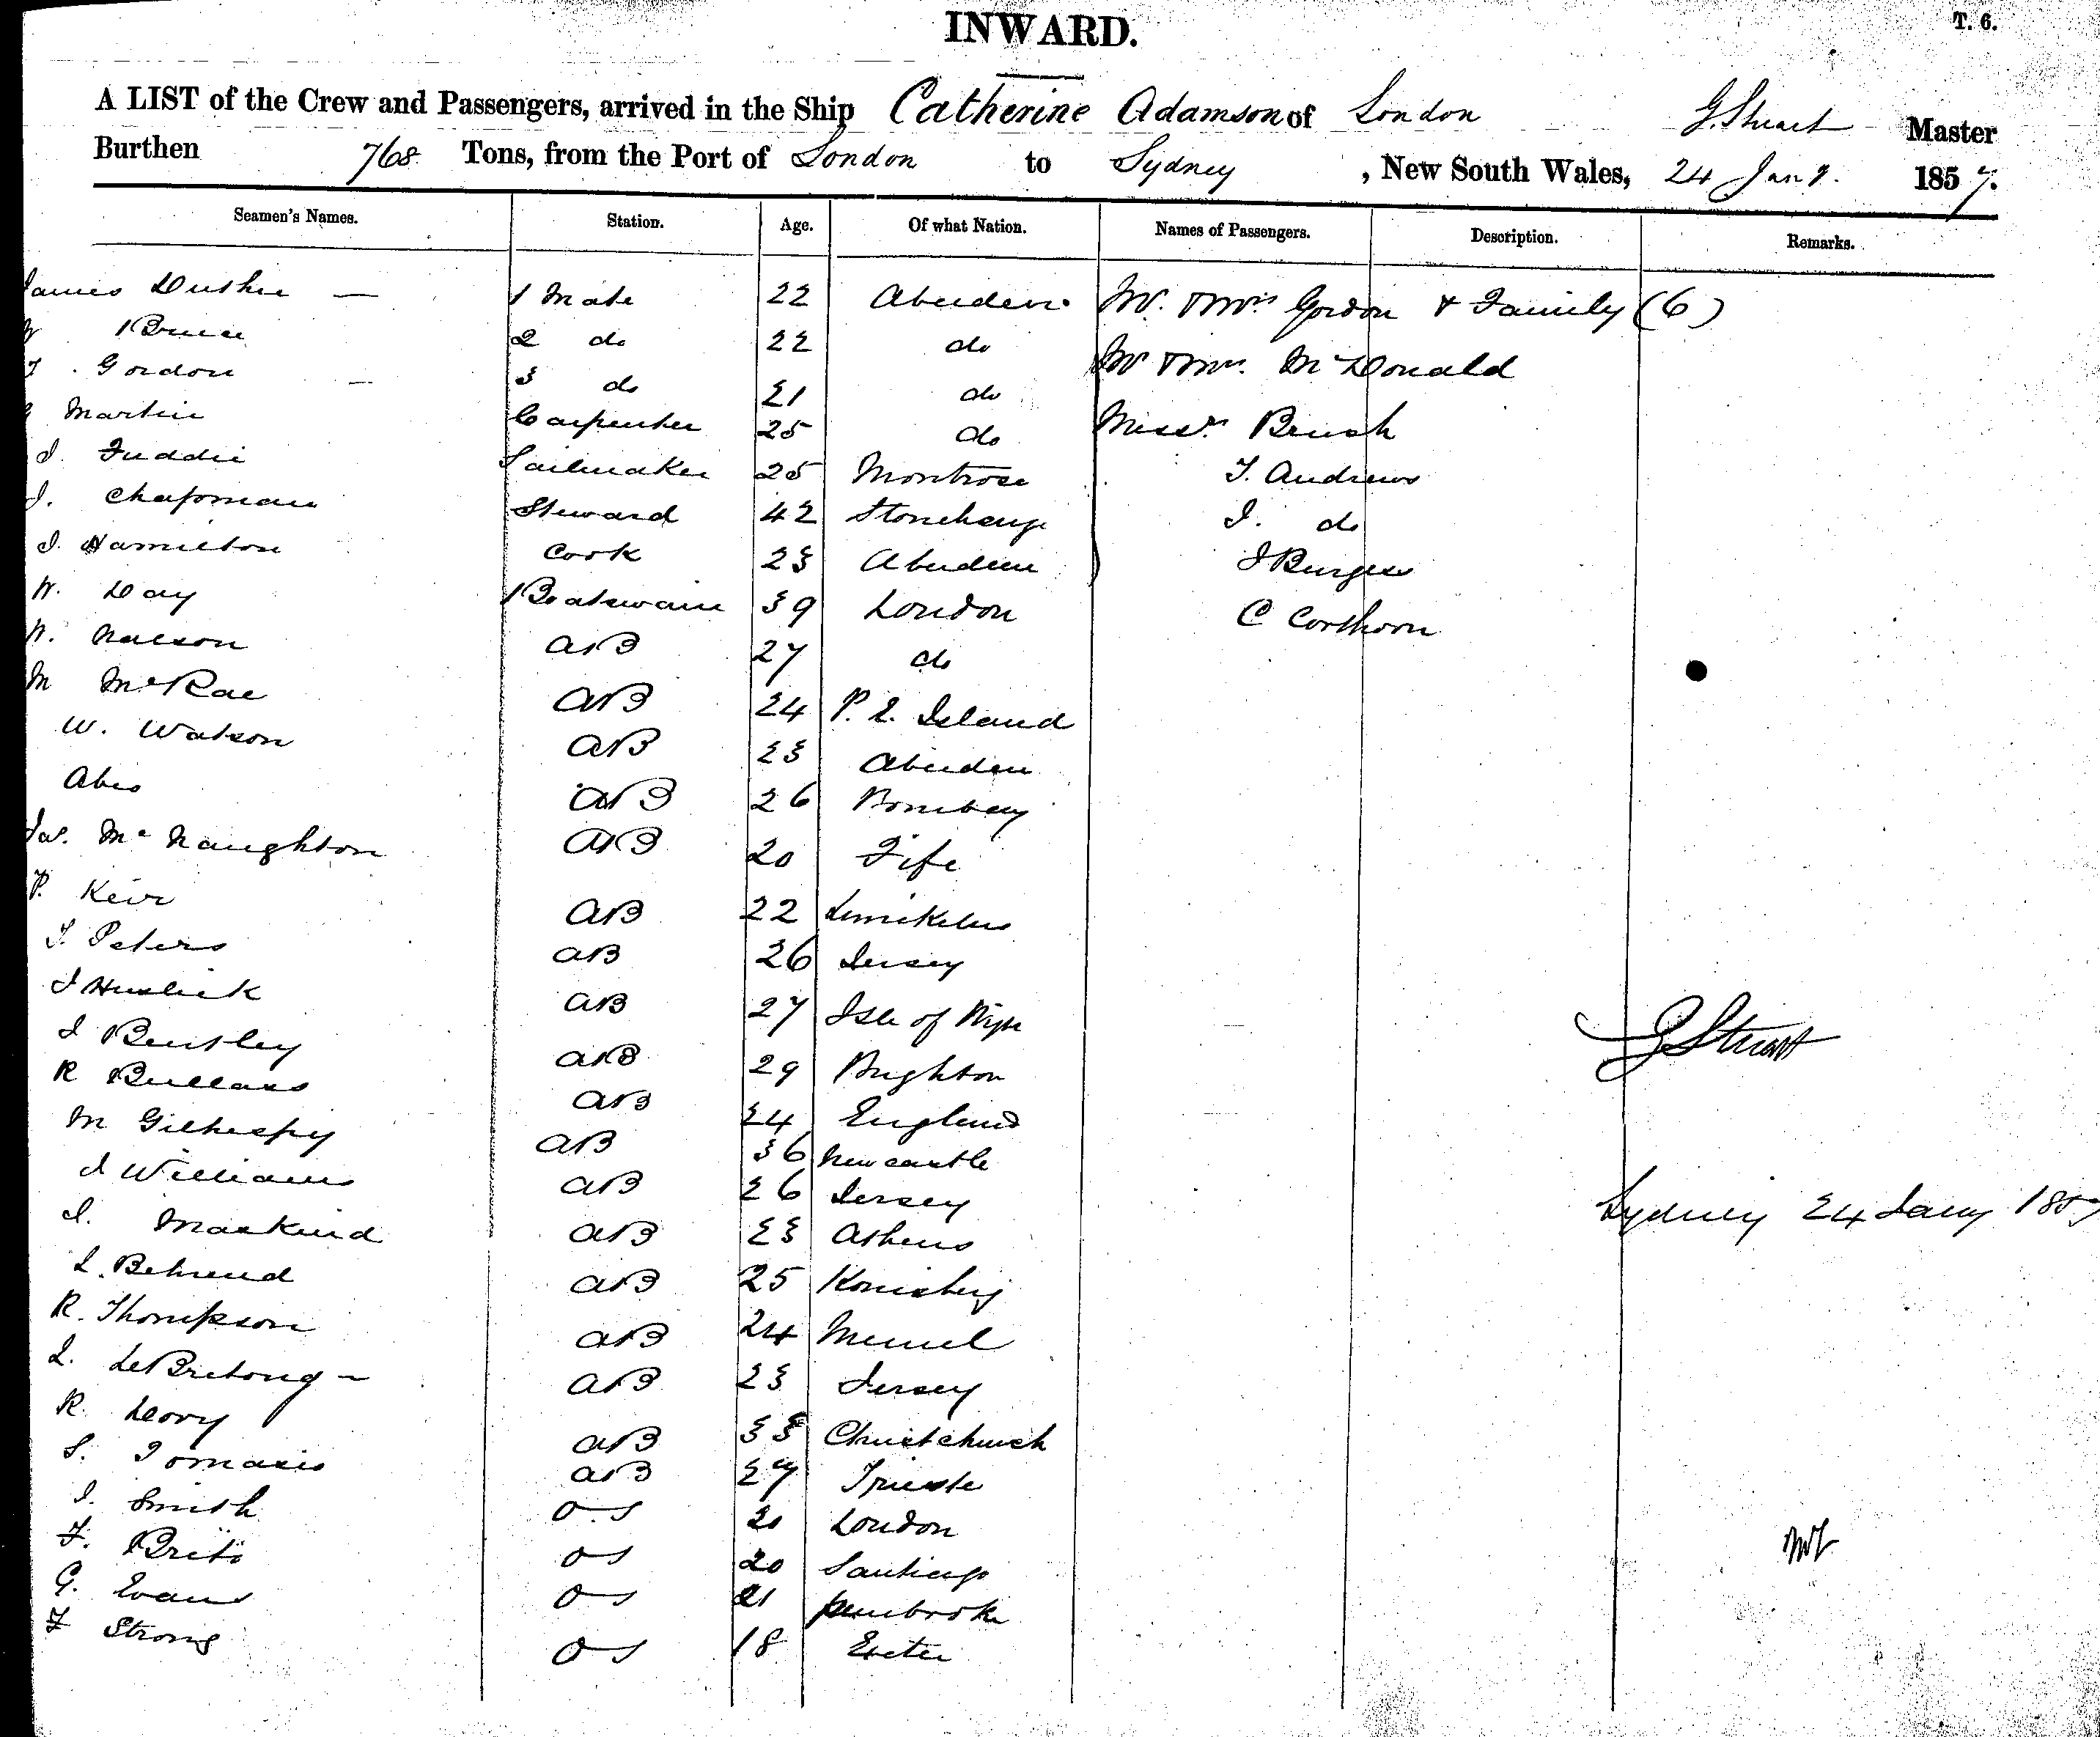 INWARD.
T. 6.
A LIST of the Crew and Passengers, arrived in the Ship Catherine Adamson of London G. Stuart Master
Burthen 768 Tons, from the Port of London to Sydney, New South Wales, 24 Jany. 1857.
Seamen's Names. Station. Age. Of what Nation. Names of Passengers. Description. Remarks.
James Duthie — 1 Mate 22 Aberdeen Mr. & Mrs Gordon & Family (6)
Bruce 2 do 22 do Mr & Mrs. McDonald
Gordon — 3 do 21 do
Martin Carpenter 25 do Messrs Brush
J. Fuddie Sailmaker 25 Montrose T. Andrews
J. Chapman Steward 42 Stonehenge J. do
J. Hamilton Cook 23 Aberdeen J Burgess
W. Day Boatswain 39 London C Corthorn
W. Nelson AB 27 do
M McRae AB 24 P. E. Island
W. Watson AB 23 Aberdeen
Abes AB 26 Bombay
Jas. McNaughton AB 20 Fife
P. Keir AB 22
T. Peters AB 26 Jersey
J AB 27 Isle of
J Bentley AB 29 Brighton
R Bullans AB 24 England
M Gilhespy AB 36 Newcastle
J Williams AB 26 Jersey
J. Maskind AB 23 Athens
L. Behrend AB 25 Konisberg
R. Thompson AB 24 Memel
L. LeBretong — AB 23 Jersey
R. AB 33 Christchurch
S. Tomasis AB 27 Trieste
J. Smith OS 20 London
F. Brito OS 20 Santiago
G. Evans OS 21 Pembroke
F Strong OS 18 Exeter
G Stuart
Sydney 24 Jany 1857